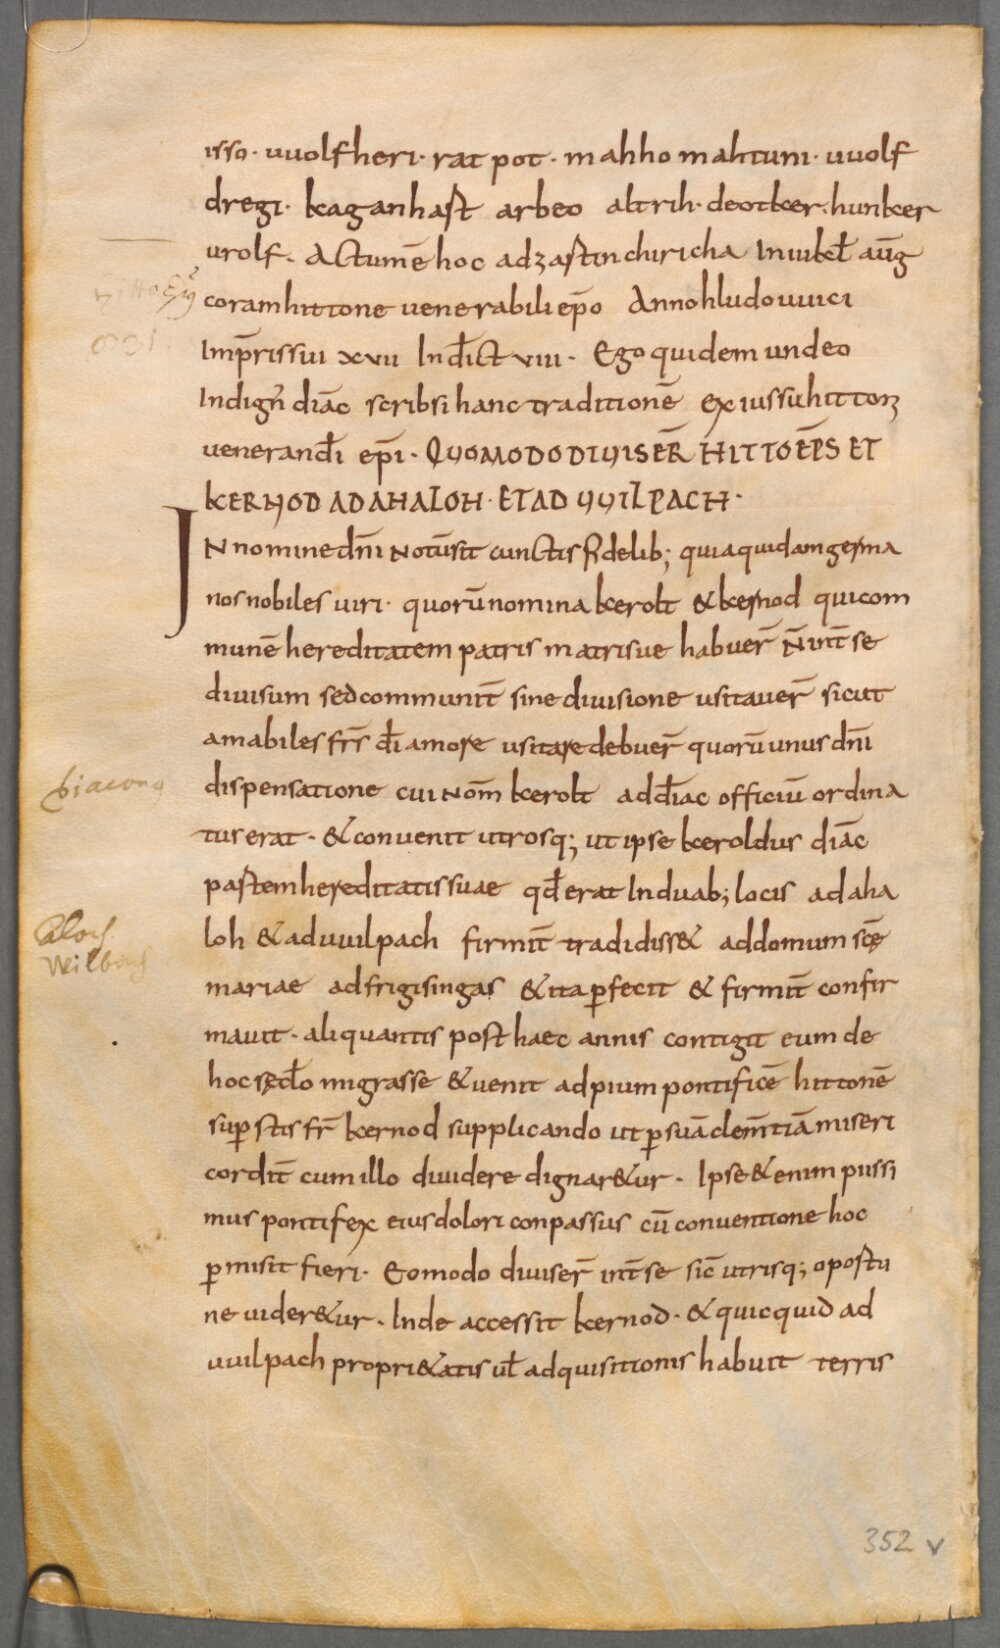 isso· uuolfheri· rat pot· mahho mahtuni· uuolf
dregi· kaganhast arbeo altrih· deotker· hunker
urolf. Actumē hoc ad zastinchiricha In iiii kl aūg
coram hittone uenerabili ep̄o Anno hludouuici
Imp̄rissui xvii Ind̄ict viii· Ego quidem undeo
Indign̄ diāc scribsi hanc traditionē ex iussu hittonis
uenerand̄i ep̄i· QUOMODO DIUISER̄ HITTO EP̄S ET
KERNOD AD AHALOH· ET AD UUILPACH·
IN nomine dn̄i Notūsit cunctis fidelib; quia quidam germa
nos nobiles uiri· quorū nomina kerolt & kernod qui com
munē hereditatem patris matrisue habuer̄ N̄ int̄ se
diuisum sed communit̄ sine diuisione usitauer̄ sicut
amabiles fr̄s d̄i amore usitare debuer̄ quorū unus dn̄i
dispensatione cui nom̄ kerolt ad d̄iac officiū ordina
tus erat· & conuenit utrosq; ut ipse keroldus diāc
partem hereditatis suae qd̄ erat In duab; locis ad aha
loh & ad uuilpach firmit̄ tradidiss& ad domum scē
mariae ad frigisingas & ita p̄fecit & firmit̄ confir
mauit· aliquantis post haec annis contigit eum de
hoc sęcl̄o migrasse & uenit ad pium pontificē hittonē
sup̄stis fr̄ kernod supplicando ut p̄ suā clem̄tiā miseri
cordit̄ cum illo diuidere dignar&ur· Ipse & enim piissi
mus pontifex eius dolori conpassus cū conuentione hoc
p̄misit fieri· Eo modo diuiser̄ int̄ se sic̄ utrisq; oportu
ne uider&ur· Inde accessit kernod· & quicquid ad
uuilpach propri&atis ul̄ adquisitionis habuit terris
hitto Ep̄s
831.
diaconus
Aloh
Wilbach
352 v